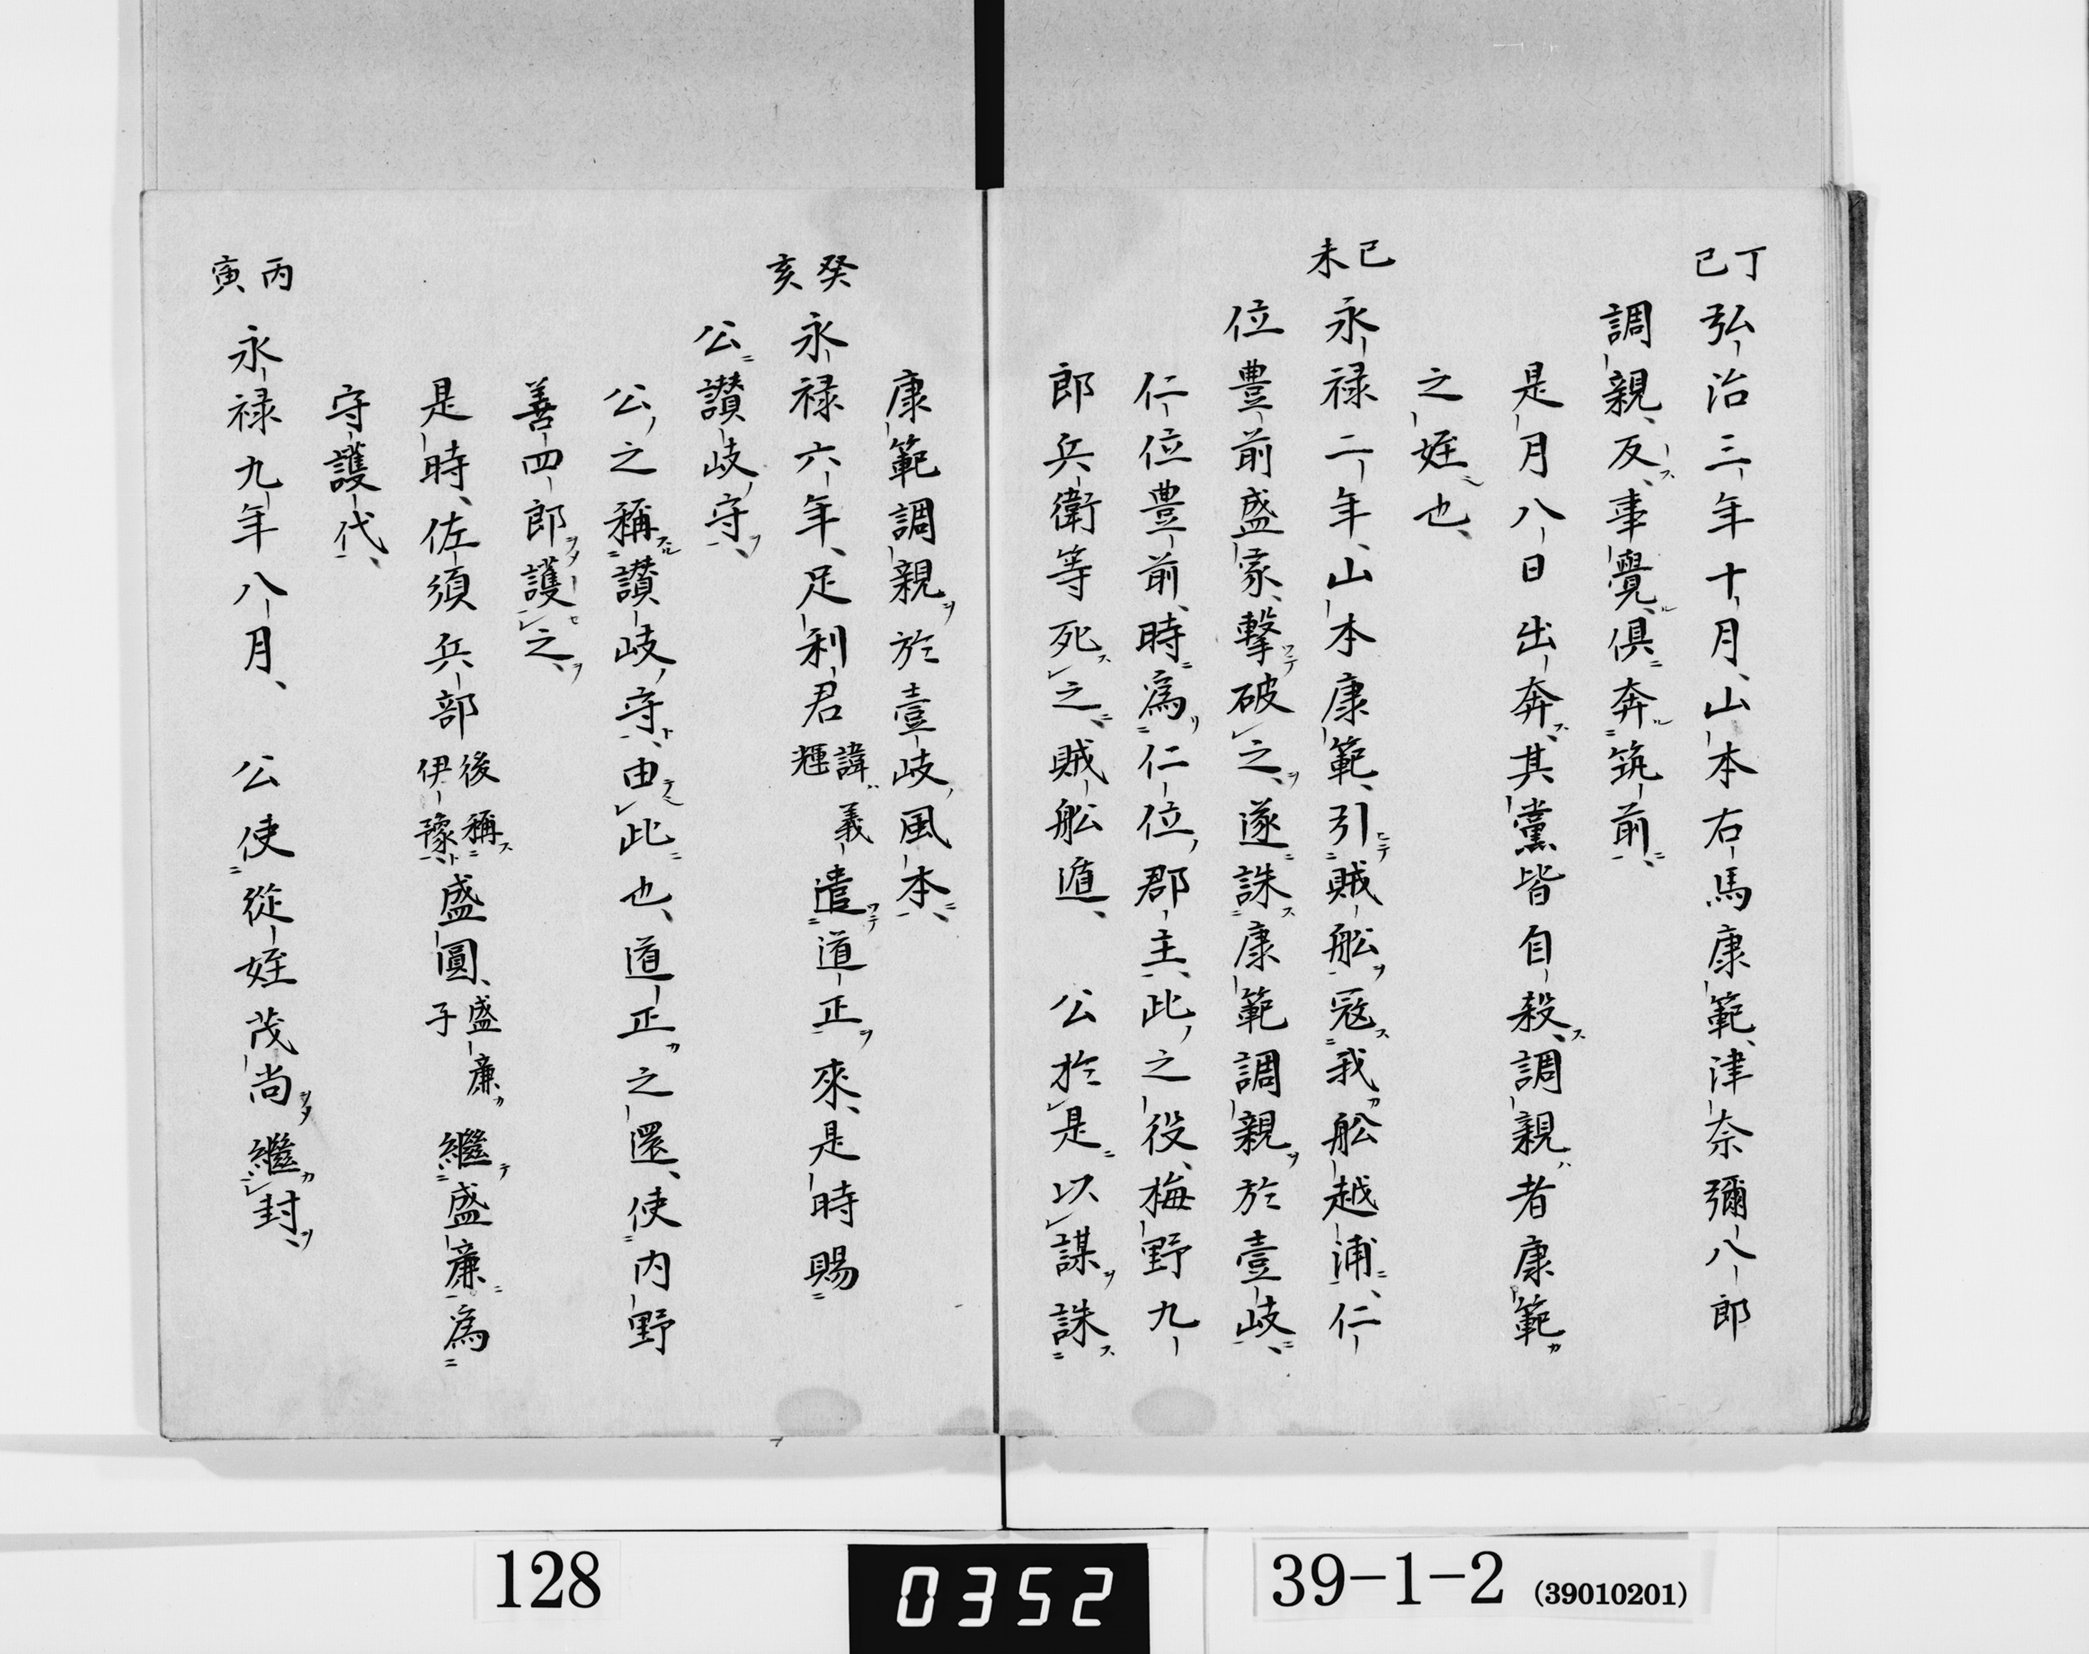 丁巳
弘治三年十月、山本右馬康範、津奈彌八郎
調親、反、事覺、俱奔筑前、
是月八日出奔、其黨皆自殺、調親者康範
之姪也、
己未
永禄二年、山本康範、引賊舩寇我舩越浦、仁
位豊前盛家、擊破之、遂誅康範調親於壹岐、
仁位豊前、時爲仁位郡主、此之役、梅野九
郎兵衛等死之、賊舩遁、 公於是以謀誅
康範調親於壹岐風本、
癸亥
永禄六年、足利君諱義輝遣道正來、是時賜
公讃岐守、
公之稱讃岐守、由此也、道正之還、使内野
善四郎護之、
是時、佐須兵部後稱伊豫盛圓、盛廉子繼盛廉爲
守護代、
丙寅
永禄九年八月、 公使從姪茂尚繼封、
128
0352
39-1-2 (39010201)